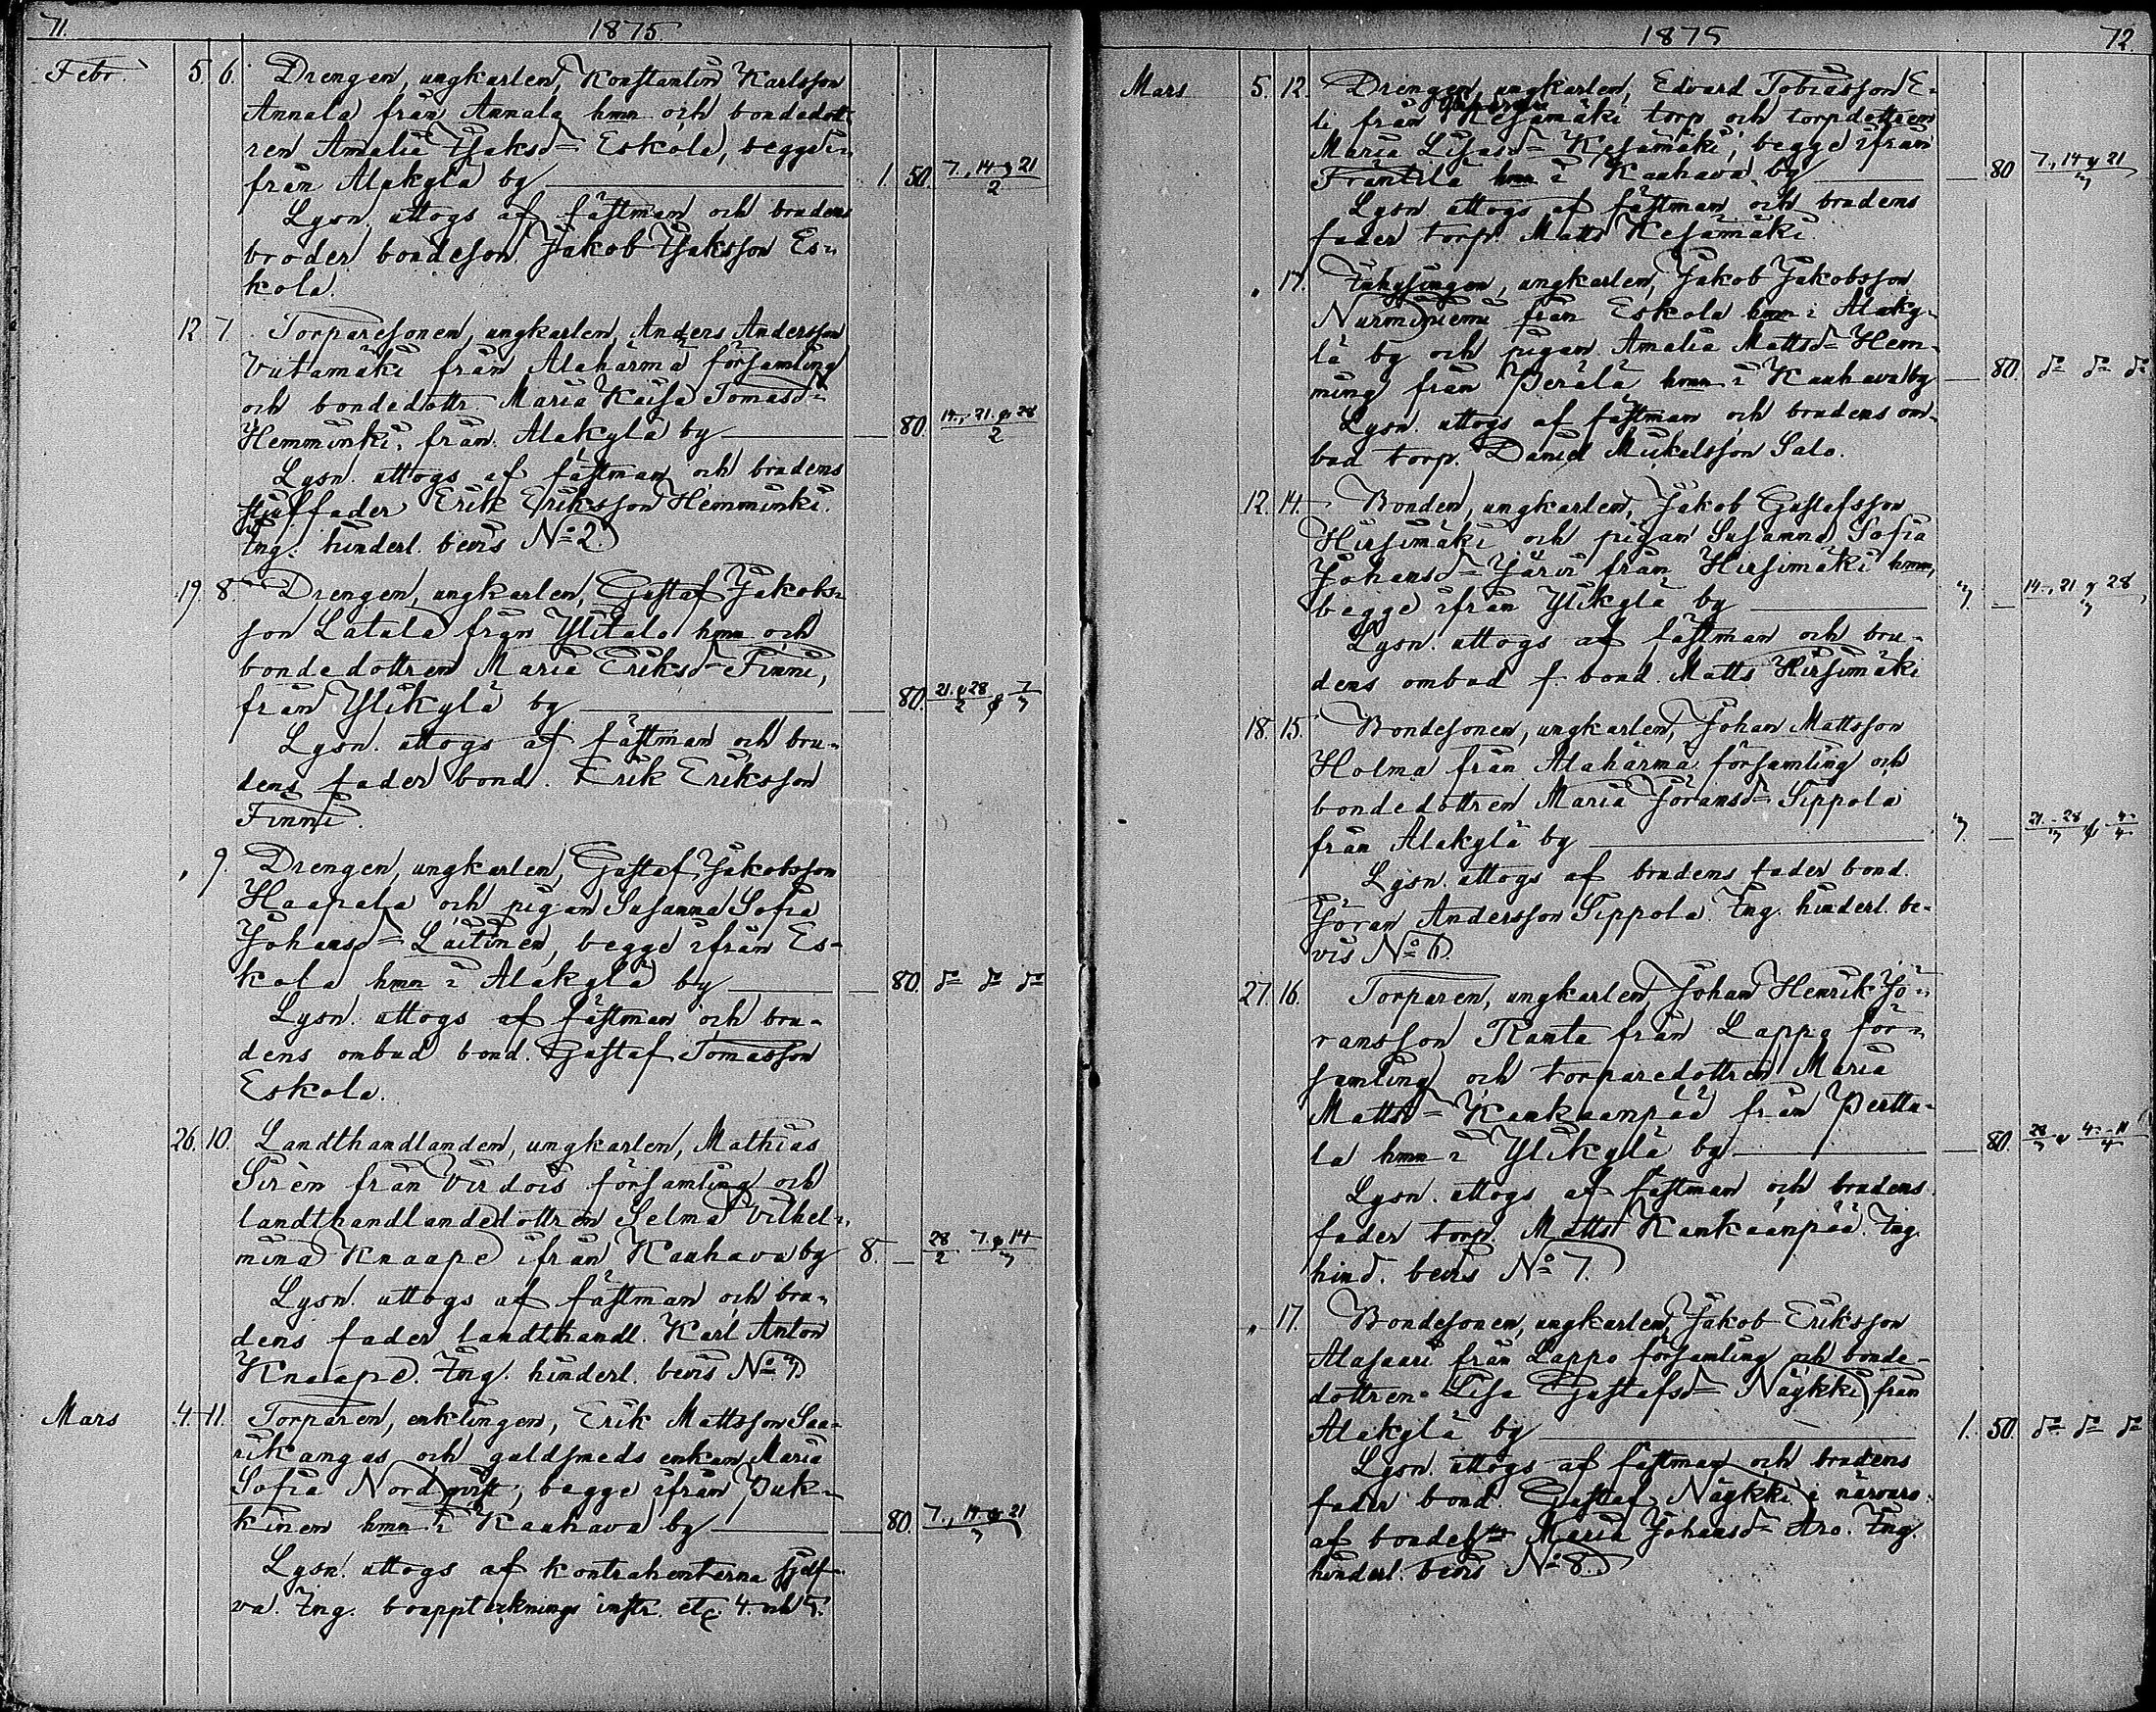 71. 1875.
Febr. 5. 6. Drengen, ungkarlen, Konstantin Karlsson
Annala från Annala hmn och bondedott-
ren Amalia Isaksd= Eskola, begge i-
från Alakylä by — 1. 50. 7., 14 o 21/2
Lysn. uttogs af fästman och brudens
broder bondeson. Jakob Isaksson Es-
kola.
12. 7. Torparesonen, ungkarlen, Anders Andersson
Vutamäki från Alahärmä församling
och bondedottr. Maria Kaisa Tomasd=
Hemminki, från Alakylä by — 80. 14., 21. o 28/2
Lysn. uttogs af fästman och brudens
stjuffader Erik Eriksson Hemminki.
Ing. hinderl. bevis No 2.
19. 8. Drengen, ungkarlen, Gustaf Jakobs-
son Latala från Ylitalo hmn och
bondedottren Maria Eriksd= Finni,
från Ylikylä by — 80. 21. o 28/2 o 7/3
Lysn. uttogs af fästman och bru-
dens fader bond. Erik Eriksson
Finni.
" 9. Drengen, ungkarlen, Gustaf Jakobsson
Haapala och pigan Susanna Sofia
Johansd= Laitinen, begge ifrån Es-
kola hmn i Alakylä by — 80. d= d= d=
Lysn. uttogs af fästman och bru-
dens ombud bond. Gustaf Tomasson
Eskola.
26. 10. Landthandlanden, ungkarlen, Mathias
Sirèn från Virdois församling och
landthandlandedottren Selma Vilhel-
mina Knaape ifrån Kauhava by 8. — 28/2 7 o 14/3
Lysn. uttogs af fästman och bru-
dens fader landthandl. Karl Anton
Knaape. Ing. hinderl. bevis No 3
Mars 4. 11. Torparen, enklingen, Erik Mattsson Saa-
rikangas och guldsmeds enkan Maria
Sofia Nordqvist, begge ifrån Puk-
kinen hmn i Kauhava by — 80. 7., 14 o 21/3
Lysn. uttogs af kontrahenterna sjelf-
va. Ing. bouppteknings instr. etc. 4. och 5.
1875 72.
Mars 5. 12. Drengen, ungkarlen, Edvard Tobiasson E-
li från Kesämäki torp och torpdottren
Maria Lisasd= Kesämäki, begge ifrån
Fräntilä hmn i Kauhava by — 80 7., 14 o 21/3
Lysn. uttogs af fästman och brudens
fader torp. Matts Kesämäki.
" 13. Inhysingen, ungkarlen, Jakob Jakobsson
Nurminiemi från Eskola hmn i Alaky-
lä by och pigan Amalia Mattsd= Hem-
ming från Perälä hmn i Kauhava by — 80. d= d= d=
Lysn. uttogs af fästman och brudens om-
bud torp. Daniel Mickelsson Salo.
12. 14. Bonden, ungkarlen, Jakob Gustafsson
Hirsimäki och pigan Susanna Sofia
Johansd= Järvi från Hirsimäki hmn,
begge ifrån Ylikylä by — 3. — 14., 21 o 28/3
Lysn. uttogs af fästman och bru-
dens ombud f. bond. Matts Hirsimäki
18. 15. Bondesonen, ungkarlen, Johan Mattsson
Holma från Alahärmä församling och
bondedottren Maria Göransd= Sippola
från Alakylä by — 3. — 21. 28/3 o 4/4
Lysn. uttogs af brudens fader bond.
Göran Andersson Sippola. Ing. hinderl. be-
vis No 6.
27. 16. Torparen, ungkarlen, Johan Henrik Jö-
ransson Ranta från Lappo för-
samling och torparedottren Maria
Mattsd= Kankaanpää från Perttu-
la hmn i Ylikylä by — 80. 28/3 o 4. 11/4
Lysn. uttogs af fästman och brudens
fader torp. Matts Kankaanpää. Ing.
hind. bevis No 7.
" 17. Bondesonen, ungkarlen, Jakob Eriksson
Alasaari från Lappo församling och bonde-
dottren Lisa Gustafsd= Näykki från
Alakylä by — 1. 50. d= d= d=
Lysn. uttogs af fästman och brudens
fader bond. Gustaf Näykki i närvaro
af Maria Johansd= Aro. Ing.
hinderl. bevis No 8.